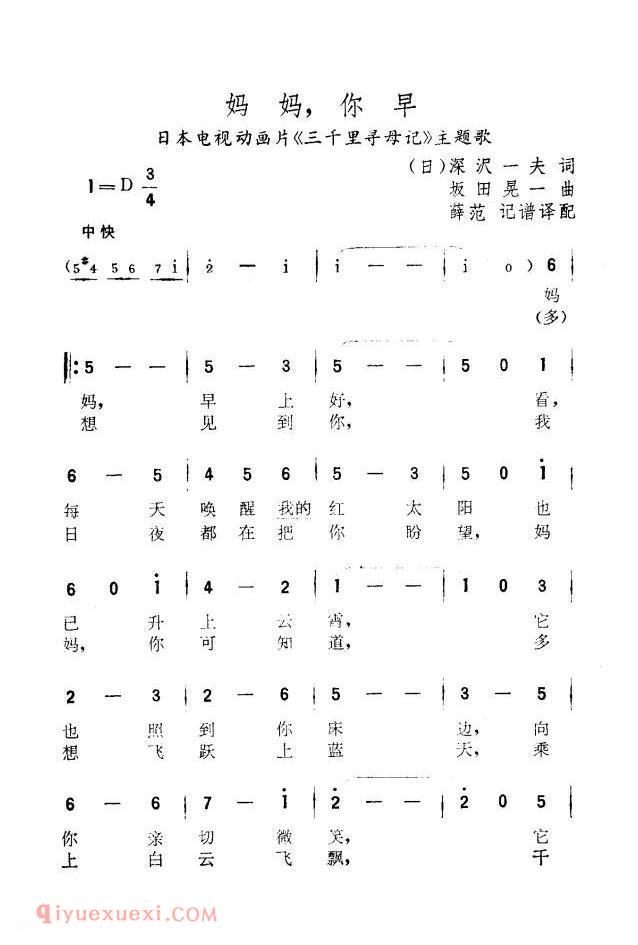 妈 妈，你 早
日本电视动画片《三千里寻母记》主题歌
(日)深 沢 一 夫 词
1=D 3/4 坂 田 晃 一 曲
薛范 记谱译配
中快
(5 #4 5 6 7 i | 2 - i | i - - | i o ) 6 |
妈
(多)
|: 5 - - | 5 - 3 | 5 - - | 5 0 1 |
妈， 早 上 好， 看，
想 见 到 你， 我
6 - 5 | 4 5 6 | 5 - 3 | 5 0 i |
每 天 唤 醒 我的 红 太 阳 也
日 夜 都 在 把 你 盼 望，妈
6 0 i | 4 - 2 | 1 - - | 1 0 3 |
已 升 上 云 霄， 它
妈， 你 可 知 道， 多
2 - 3 | 2 - 6 | 5 - - | 3 - 5 |
也 照 到 你 床 边，向
想 飞 跃 上 蓝 天，乘
6 - 6 | 7 - i | 2 - - | 2 0 5 |
你 亲 切 微 笑， 它
上 白 云 飞 飘， 千
qiyuexuexi.com